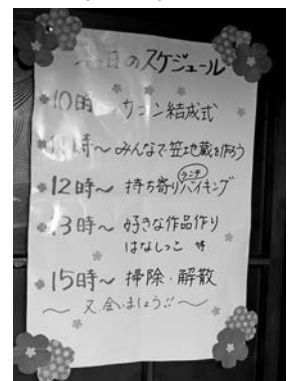 本日のスケジュール
10時~ サロン結成式
11時~みんなで笠地蔵を作ろう
12時~ 持ち寄りランチバイキング
13時~ 好きな作品作り
はなしっこ 等
15時~ 掃除・解散
~ 又、会いましょう!! ~